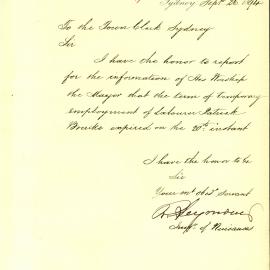 Sydney Sept 26 1894
To the Town Clerk Sydney
Sir
I have the honor to report
for the information of His Worship
the Mayor that the term of temporary
employment of Labourer Patrick
Bourke expired on the 20th instant
I have the honor to be
Sir
Your mt obdt servant
Seymour
Inspr of Nuisances